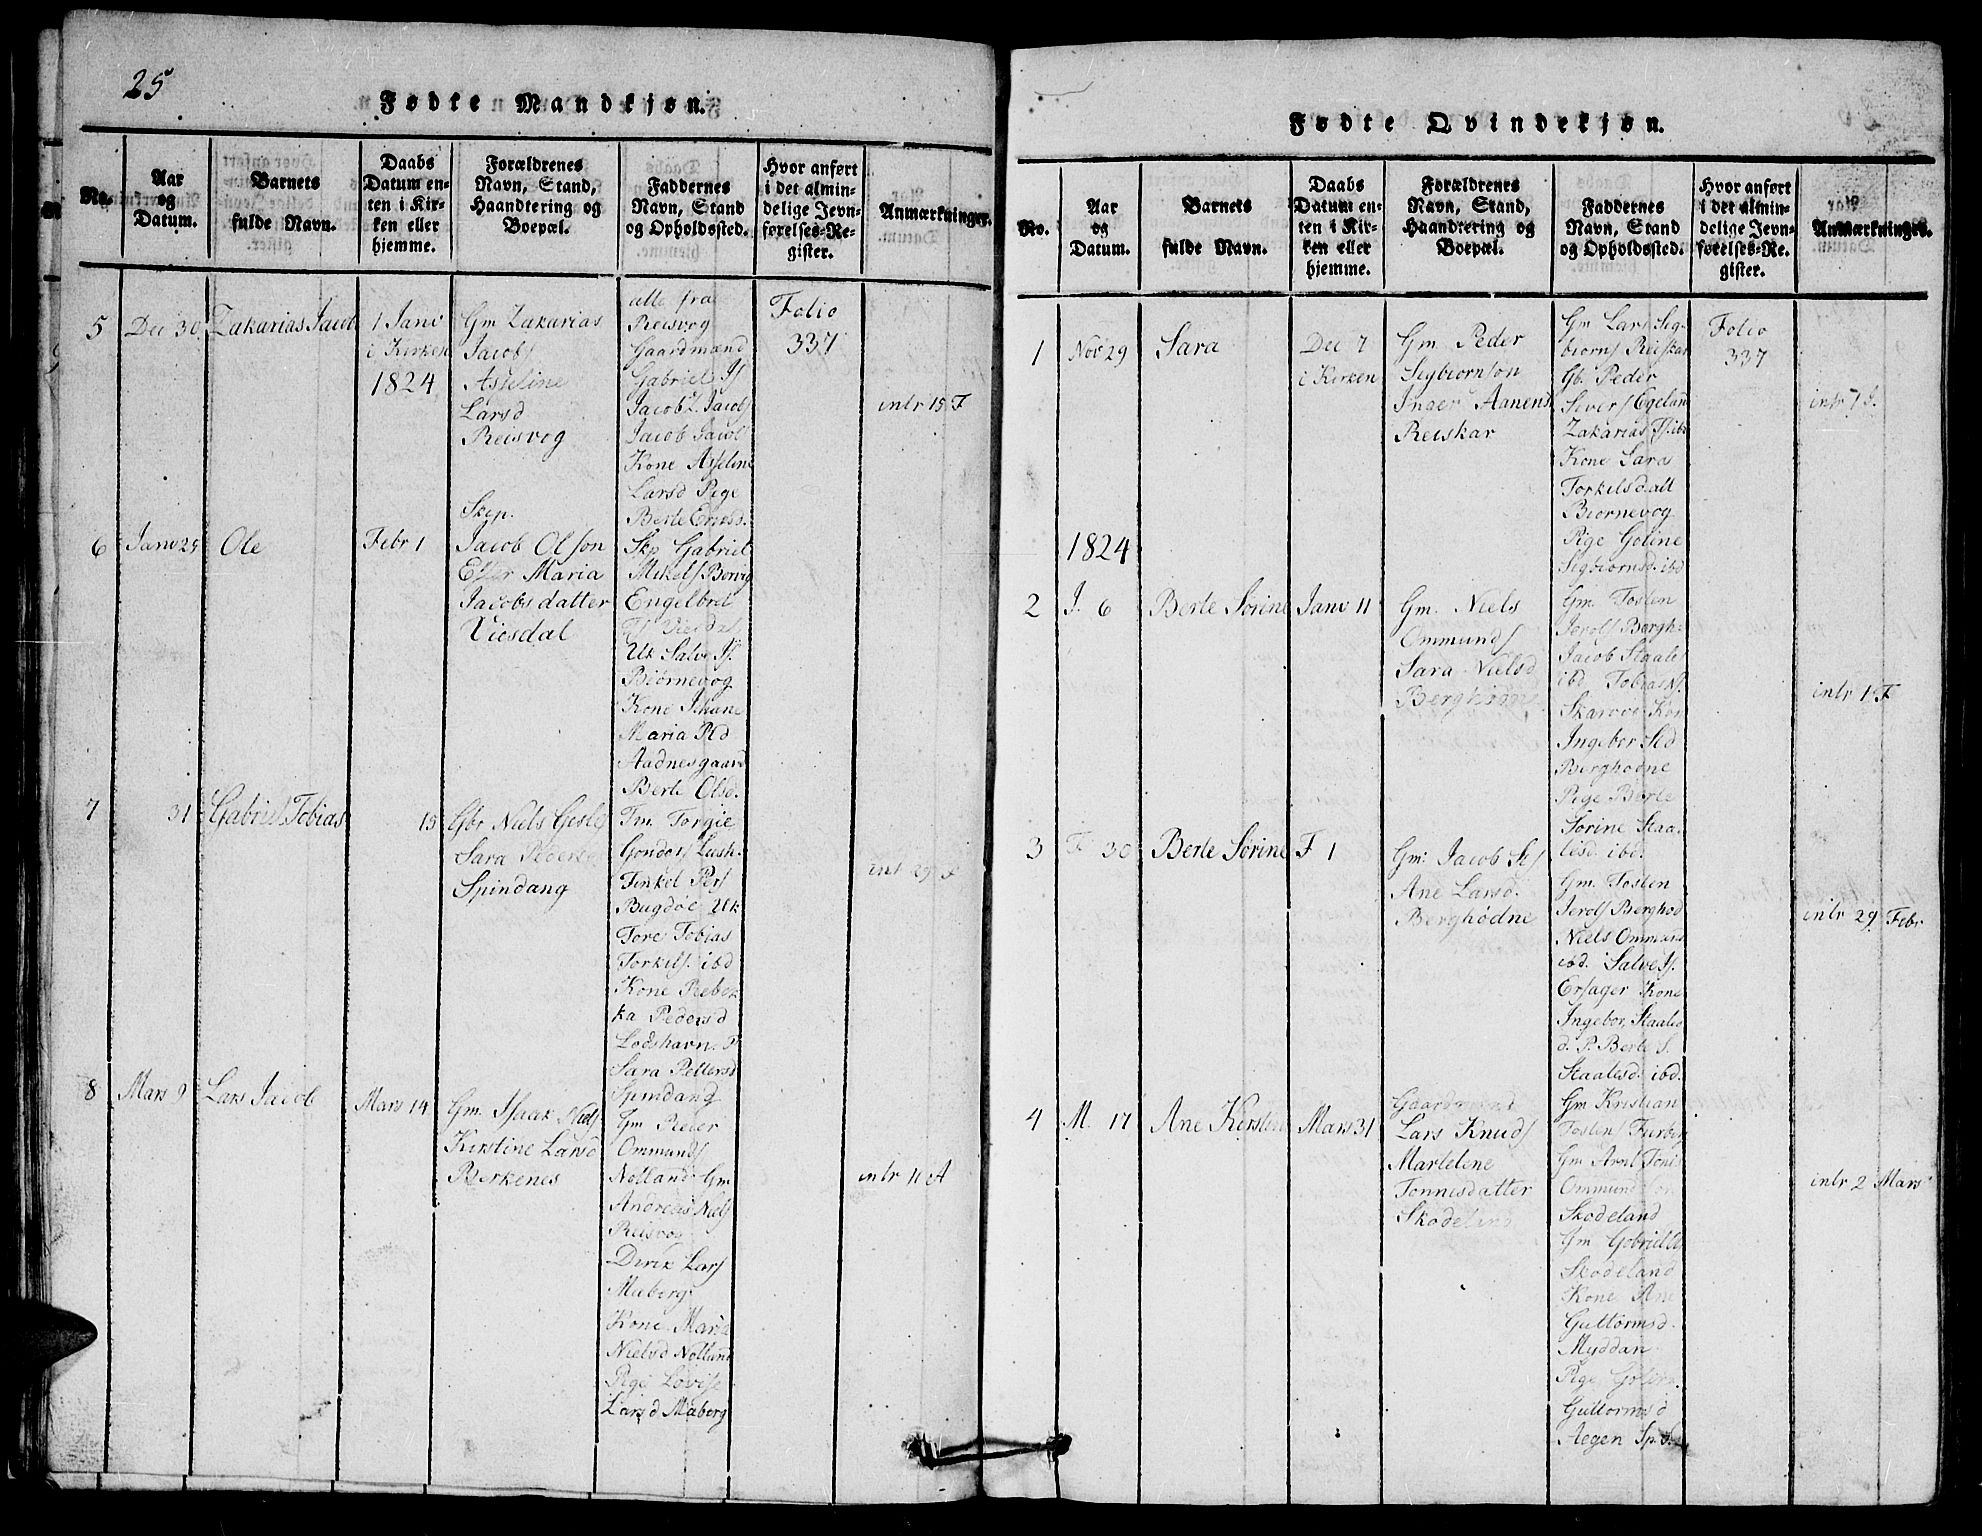 25
Fødte Mandkjøn.
No.
Aar
og
Datum.
Barnets
fulde Navn.
Daabs
Datum en-
ten i Kir-
ken eller
hjemme.
Forældrenes
Navn, Stand,
Haandtering og
Boepæl.
Faddernes
Navn, Stand
og Opholdssted.
Hvor anført
i det almin-
delige Jevn-
førelses-Re-
gister.
Anmærkninger.
5
Dec 30
Zakarias Jacob
1 Janv
i Kirken
1824
Gm Zakarias
Jacobs
Asseline
Larsd
Reisvog
alle fra
Reisvog
Gaardmænd
Gabriel Js
Jacob Z. Jacobs
Jacob Jacobs
Kone Asseline
Larsd Pige
Berte
Folio
337
intr 15 F
6
Janv 25
Ole
Febr 1
Skip.
Jacob Olsson
Ester Maria
Jacobsdatter
Viesdal
Skp Gabriel
Mikels Borvig
Engelbret
Uk Salve Js.
Biørnevog
Kone Johane
Maria Pd
Aadnesgaard
Berte Olsd.
7
31
Gabriel Tobias
15
Gbr Niels
Sara
Spindang
Tm. Torgie
Gondors
Tinkel Pers
Bugdøe Uk
Tore Tobias
Torkils. ibd
Kone Rebek
ka Pedersd
Lodshavn. P
Sara Pettersd
Spindang
int 29 F
8
Mars 9
Lars Jacob
Mars 14
Gm. Isaak Niels
Kirstine Larsd
Berkenes
Gm Peder
Ommunds
Nolland Gm
Andreas Niels
Reisvog
Dirik Lars
Møberg
Kone Maria
Nielsd Nolland
Pige Lovise
Larsd Møberg
intr 11 A
Fødte Qvindekjøn.
No.
Aar
og
Datum.
Barnets
fulde Navn.
Daabs
Datum en-
ten i Kir-
ken eller
hjemme.
Forældrenes
Navn, Stand,
Haandtering og
Boepæl.
Faddernes
Navn, Stand
og Opholdssted.
Hvor anført
i det almin-
delige Jevn-
førelses-Re-
gister.
Anmærkninger.
1
Nov 29
Sara
Dec 7
i Kirken
Gm. Peder
Segbiornson
Inger Aanens
Reiskar
Gm Lars Seg-
biorns Reiskar
Gb. Peder
Sivers Egelan
Zakarias Js. ibd
Kone Sara
Torkelsd. alt
Biornevog
Pige Goline
Segbiornsd. ibd
Folio
337
intr 7 J.
1824
2
J. 6
Berte Sørine
Janv 11
Gm. Niels
Ommunds
Sara Nielsd
Berghødne
Gm. Tosten
Jerols Bergh.
Jacob Staales
ibd Tobias N.
Skarvøe Kon
Ingebor Sd
Berghødne
Pige Berte
Sørine Staa-
lesd. ibd.
intr 1 F
3
F 30
Berte Sørine
F 1
Gm: Jacob Sts
Ane Larsd.
Berghødne
Gm. Tosten
Jerols Berghød
Niels Ommund
ibd. Salve Js.
Ersager Kone
Ingebor. Staales
d. P. Berte S.
Staalesd. ibd.
intr 29 Febr
4
M. 17
Ane Kirsten
Mars 31
Gaardmand
Lars Knuds
Marteline
Tønnesdatter
Skodeland
Gm Kristian
Tostens
Gm Arnt Tønis
Ommund
Skodeland
Gm Gabriel
Skodeland
Kone Ane
Guttormsd.
Myddan
Pige
Guttormsd
Aegen
intr 2 Mars